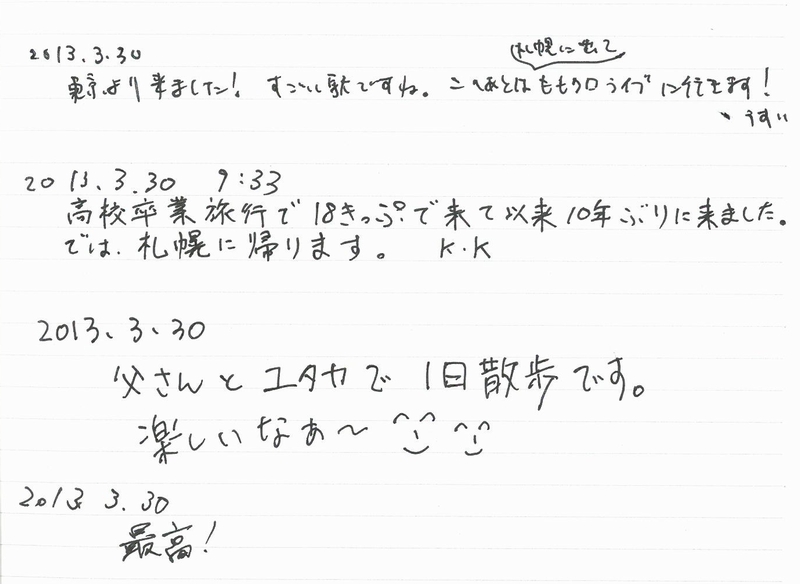 2013.3.30
札幌に出て
東京より来ました! すごい駅ですね。このあとはももクロライブに行きます!
うすい
2013.3.30 9:33
高校卒業旅行で18きっぷで来て以来10年ぶりに来ました。
では、札幌に帰ります。 K.K
2013、3、30
父さんとユタカで1日散歩です。
楽しいなぁ〜
2013 3.30
最高!